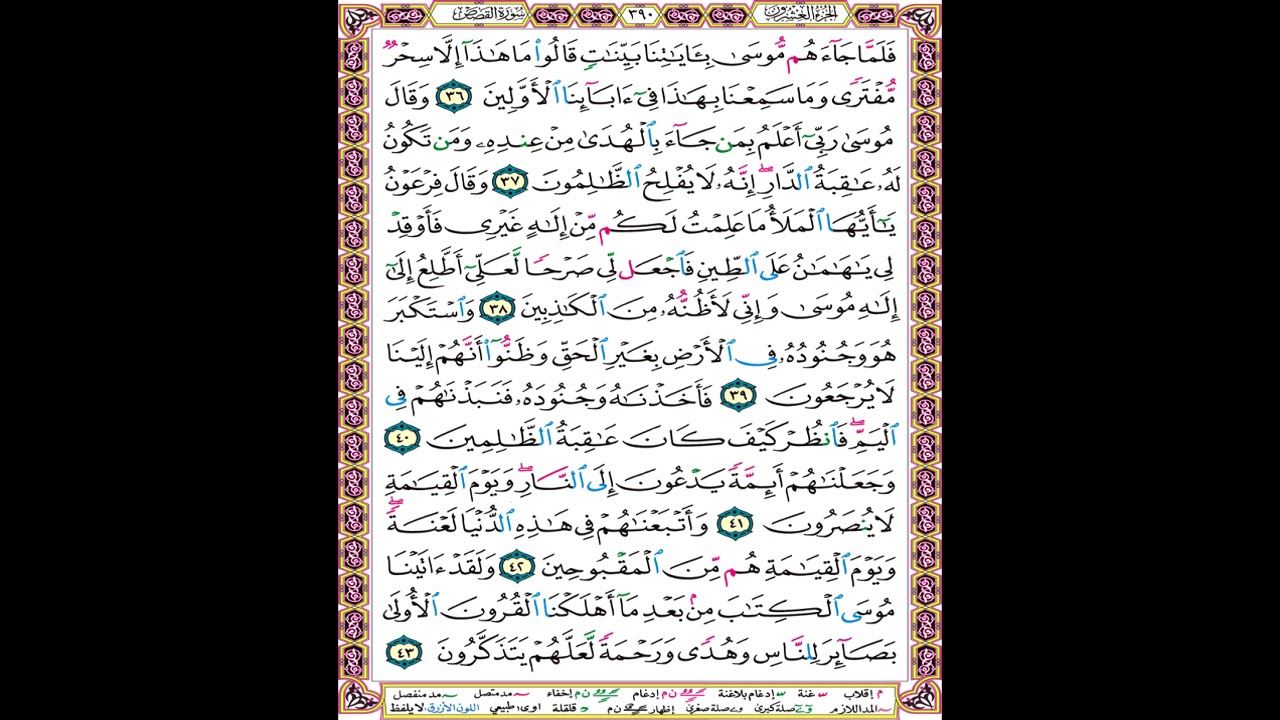 سورة القصص ٣٩٠ الجزء العشرون
فَلَمَّا جَآءَهُم مُّوسَىٰ بِـَٔايَـٰتِنَا بَيِّنَـٰتٍ قَالُوا۟ مَا هَـٰذَآ إِلَّا سِحْرٌ
مُّفْتَرًى وَمَا سَمِعْنَا بِهَـٰذَا فِىٓ ءَابَآئِنَا ٱلْأَوَّلِينَ ٣٦ وَقَالَ
مُوسَىٰ رَبِّىٓ أَعْلَمُ بِمَن جَآءَ بِٱلْهُدَىٰ مِنْ عِندِهِۦ وَمَن تَكُونُ
لَهُۥ عَـٰقِبَةُ ٱلدَّارِ ۖ إِنَّهُۥ لَا يُفْلِحُ ٱلظَّـٰلِمُونَ ٣٧ وَقَالَ فِرْعَوْنُ
يَـٰٓأَيُّهَا ٱلْمَلَأُ مَا عَلِمْتُ لَكُم مِّنْ إِلَـٰهٍ غَيْرِى فَأَوْقِدْ
لِى يَـٰهَـٰمَـٰنُ عَلَى ٱلطِّينِ فَٱجْعَل لِّى صَرْحًا لَّعَلِّىٓ أَطَّلِعُ إِلَىٰٓ
إِلَـٰهِ مُوسَىٰ وَإِنِّى لَأَظُنُّهُۥ مِنَ ٱلْكَـٰذِبِينَ ٣٨ وَٱسْتَكْبَرَ
هُوَ وَجُنُودُهُۥ فِى ٱلْأَرْضِ بِغَيْرِ ٱلْحَقِّ وَظَنُّوٓا۟ أَنَّهُمْ إِلَيْنَا
لَا يُرْجَعُونَ ٣٩ فَأَخَذْنَـٰهُ وَجُنُودَهُۥ فَنَبَذْنَـٰهُمْ فِى
ٱلْيَمِّ ۖ فَٱنظُرْ كَيْفَ كَانَ عَـٰقِبَةُ ٱلظَّـٰلِمِينَ ٤٠
وَجَعَلْنَـٰهُمْ أَئِمَّةً يَدْعُونَ إِلَى ٱلنَّارِ ۖ وَيَوْمَ ٱلْقِيَـٰمَةِ
لَا يُنصَرُونَ ٤١ وَأَتْبَعْنَـٰهُمْ فِى هَـٰذِهِ ٱلدُّنْيَا لَعْنَةً ۖ
وَيَوْمَ ٱلْقِيَـٰمَةِ هُم مِّنَ ٱلْمَقْبُوحِينَ ٤٢ وَلَقَدْ ءَاتَيْنَا
مُوسَى ٱلْكِتَـٰبَ مِنۢ بَعْدِ مَآ أَهْلَكْنَا ٱلْقُرُونَ ٱلْأُولَىٰ
بَصَآئِرَ لِلنَّاسِ وَهُدًى وَرَحْمَةً لَّعَلَّهُمْ يَتَذَكَّرُونَ ٤٣
م إقلاب غنة إدغام بلاغنة ن م إدغام ن م إخفاء مد متصل مد منفصل
المد اللازم صلة كبرى صلة صغرى إظهار ن م د قلقلة اوى: طبيعي اللون الأزرق لا يلفظ